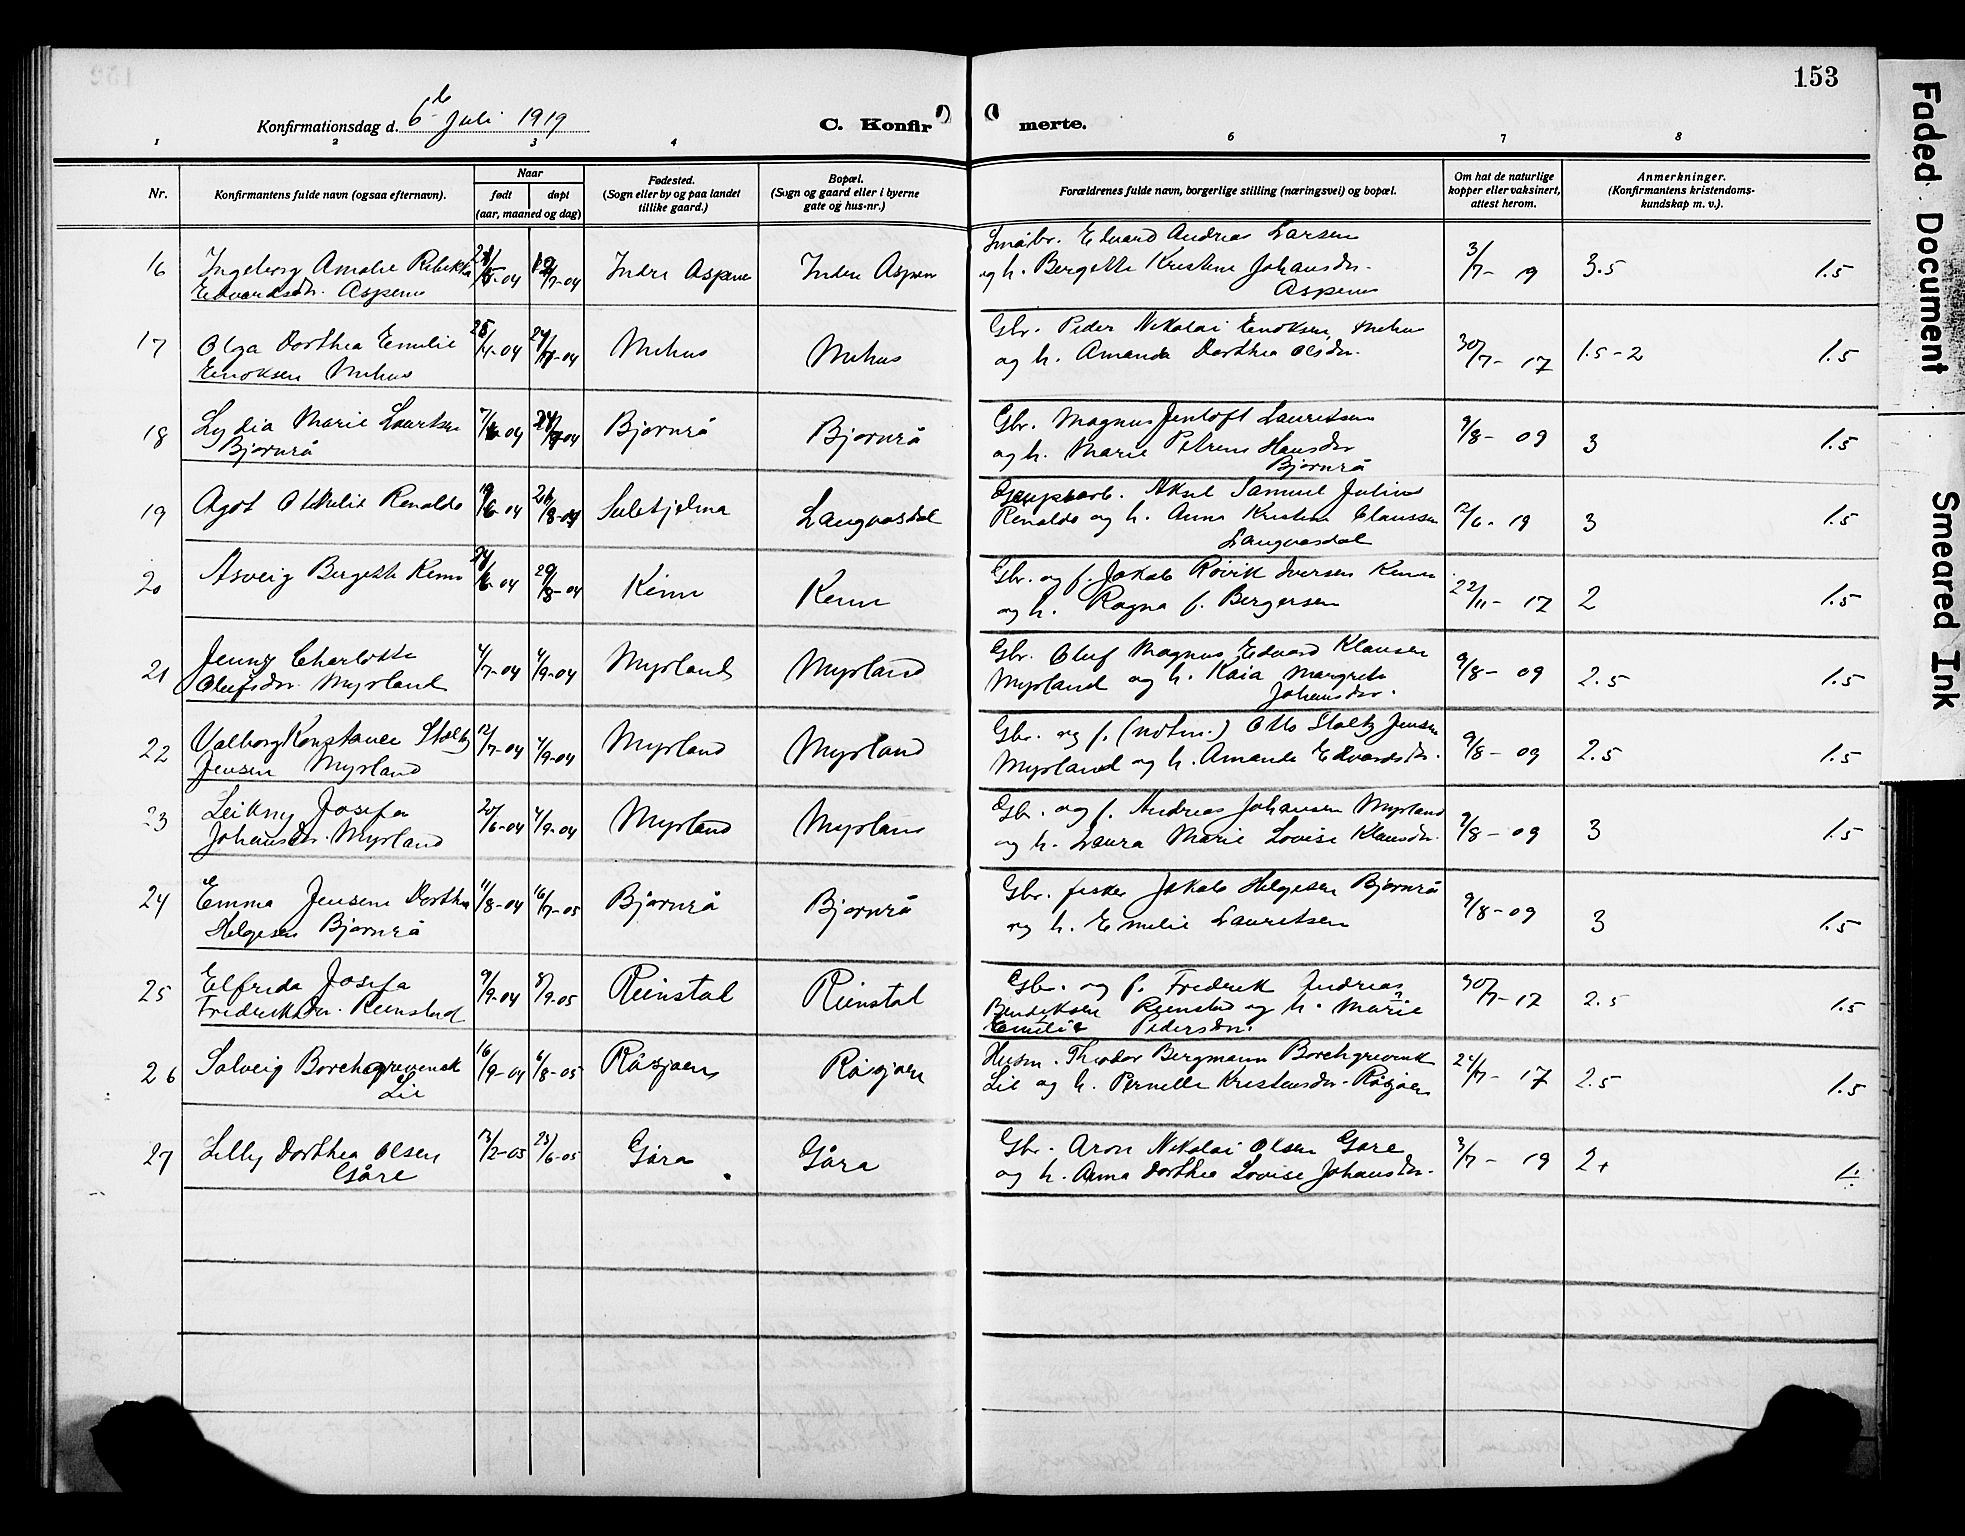 153
Konfirmationsdag d. 6te Juli 1919
C. Konfir merte.
1 2 3 4 6 7 8
Nr.
Konfirmantens fulde navn (ogsaa efternavn).
Naar
født døpt
(aar, maaned og dag)
Fødested.
(Sogn eller by og paa landet
tillike gaard.)
Bopæl.
(Sogn og gaard eller i byerne
gate og hus-nr.)
Forældrenes fulde navn, borgerlige stilling (næringsvei) og bopæl.
Om hat de naturlige
kopper eller vaksinert,
attest herom.
Anmerkninger.
(Konfirmantens kristendoms-
kundskap m. v.).
Småbr. Edvard Andreas Larsen
16 Ingeborg Amalie Rebekka 12/7-04 Indre Aspenes Indre Aspen og h. Bergette Kristine Johansdr. 3/7- 19 3.5 1.5
Edvardsdr. Aspenes Aspenes
Gbr. Peder Nikolai Enoksen, Mehus
17 Olga Dorthea Emelie 25/4-04 24/7-04 Mehus Mehus og h. Amanda Dorthea Olsdr. 30/7- 17 1.5-2 1.5
Enoksen Mehus
Gbr. Magnus Jentoft Lauritsen
18 Lydia Marie Lauritsen 7/6-04 24/7-04 Bjørnrå Bjørnrå og h. Marie Petrine Hansdr 9/8- 09 3 1.5
Bjørnrå Bjørnrå
Aksel Samuel Julius
19 Agot Renaldo 19/6-04 21/8-04 Sulitjelma Langvasdal Renaldo og h. Anna Kristine Claussen 2/6-19 3 1.5
Langvasdal
Gbr. og f. Jakob Røvik Iversen Kinn
20 Asveig Bergette Kinn 24/6-04 29/8-04 Kinn Kinn og h. Ragna f. Bergersen 22/11- 17 2 1.5
Gbr. Oluf Magnus Edvard Klausen
21 Jenny Charlotte 4/7-04 4/9-04 Myrland Myrland Myrland og h. Kaia Margrete 9/8- 09 2.5 1.5
Olufsdr. Myrland Johansdr.
Gbr. og f. (notm.) Otto Stoltz Jensen
22 Valborg Konstance Stoltz 12/7-04 4/9-04 Myrland Myrland Myrland og h. Amanda Edvardsdr. 9/8- 09 2.5 1.5
Jensen Myrland
Gbr. og f. Andreas Johansen Myrland
23 Leikny Josefa 20/6-04 4/9-04 Myrland Myrland og h. Laura Marie Lovise Klausdr. 9/8-09 3 1.5
Johansdr. Myrland
Gbr. fisker Jakob Helgesen Bjørnrå
24 Emma Jensine Dorthea 11/8-04 16/7-05 Bjørnrå Bjørnrå og h. Emelie Lauritsen 9/8-09 3 1.5
Helgesen Bjørnrå
Gbr. og f. Fredrik Andreas
25 Elfrida Josefa 9/9-04 8/9-05 Reinstad Reinstad Bendiksen Reinstad og h. Marie 30/7-17 2.5 1.5
Fredriksdr. Reinstad Emilie Pedersdr.
Husm. Theodor Bergmann Borchgrevink
26 Solveig Borchgrevink 16/9-04 6/8-05 Råsjøen Råsjøen Lie og h. Pernelle Kristensdr. Råsjøen 24/7- 17 2.5 1.5
Lie
Gbr. Aron Nikolai Olsen Gåre
27 Lilly Dorthea Olsen 13/2-05 25/6-05 Gåra Gåra og h. Anna Dorthea Lovise Johansdr. 3/7- 19 2+ 1.
Gåre
Faded Document
Smeared Ink